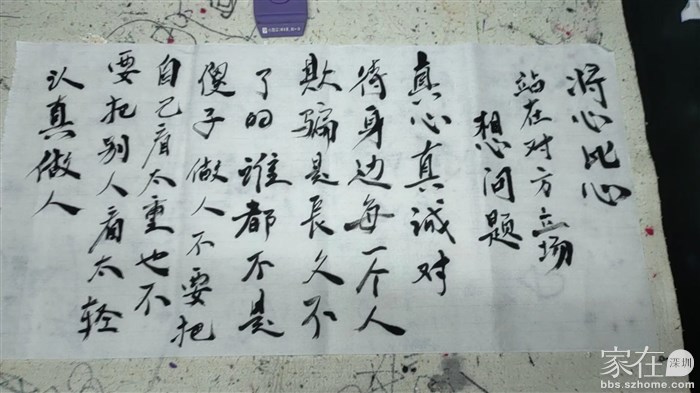 将心比心
站在对方立场
想问题
真心真诚对
待身边每一个人
欺骗是长久不
了的谁都不是
傻子做人不要把
自己看太重也不
要把别人看太轻
认真做人
家在深圳
bbs.szhome.com